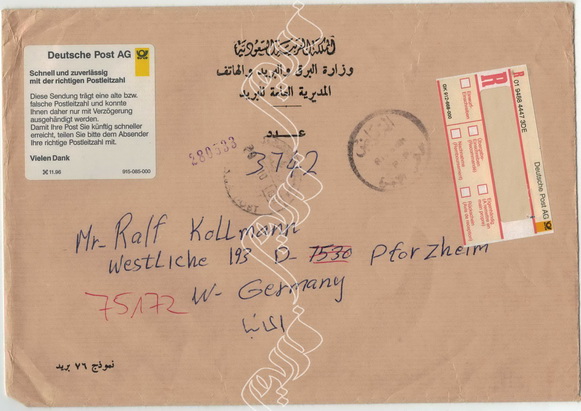 Deutsche Post AG
Schnell und zuverlässig
mit der richtigen Postleitzahl
Diese Sendung trägt eine alte bzw.
falsche Postleitzahl und konnte
Ihnen daher nur mit Verzögerung
ausgehändigt werden.
Damit Ihre Post Sie künftig schneller
erreicht, teilen Sie bitte dem Absender
Ihre richtige Postleitzahl mit.
Vielen Dank
11.96 915-085-000
المملكة العربية السعودية
وزارة البرق والبريد والهاتف
المديرية العامة للبريد
عدد
3742
280533
R
R
01 9488 4447 3DE
Deutsche Post AG
Mr. Ralf Kollmann
Westliche 193 D- 7530 Pforzheim
75172 W- Germany
المانيا
نموذج ٧٦ بريد